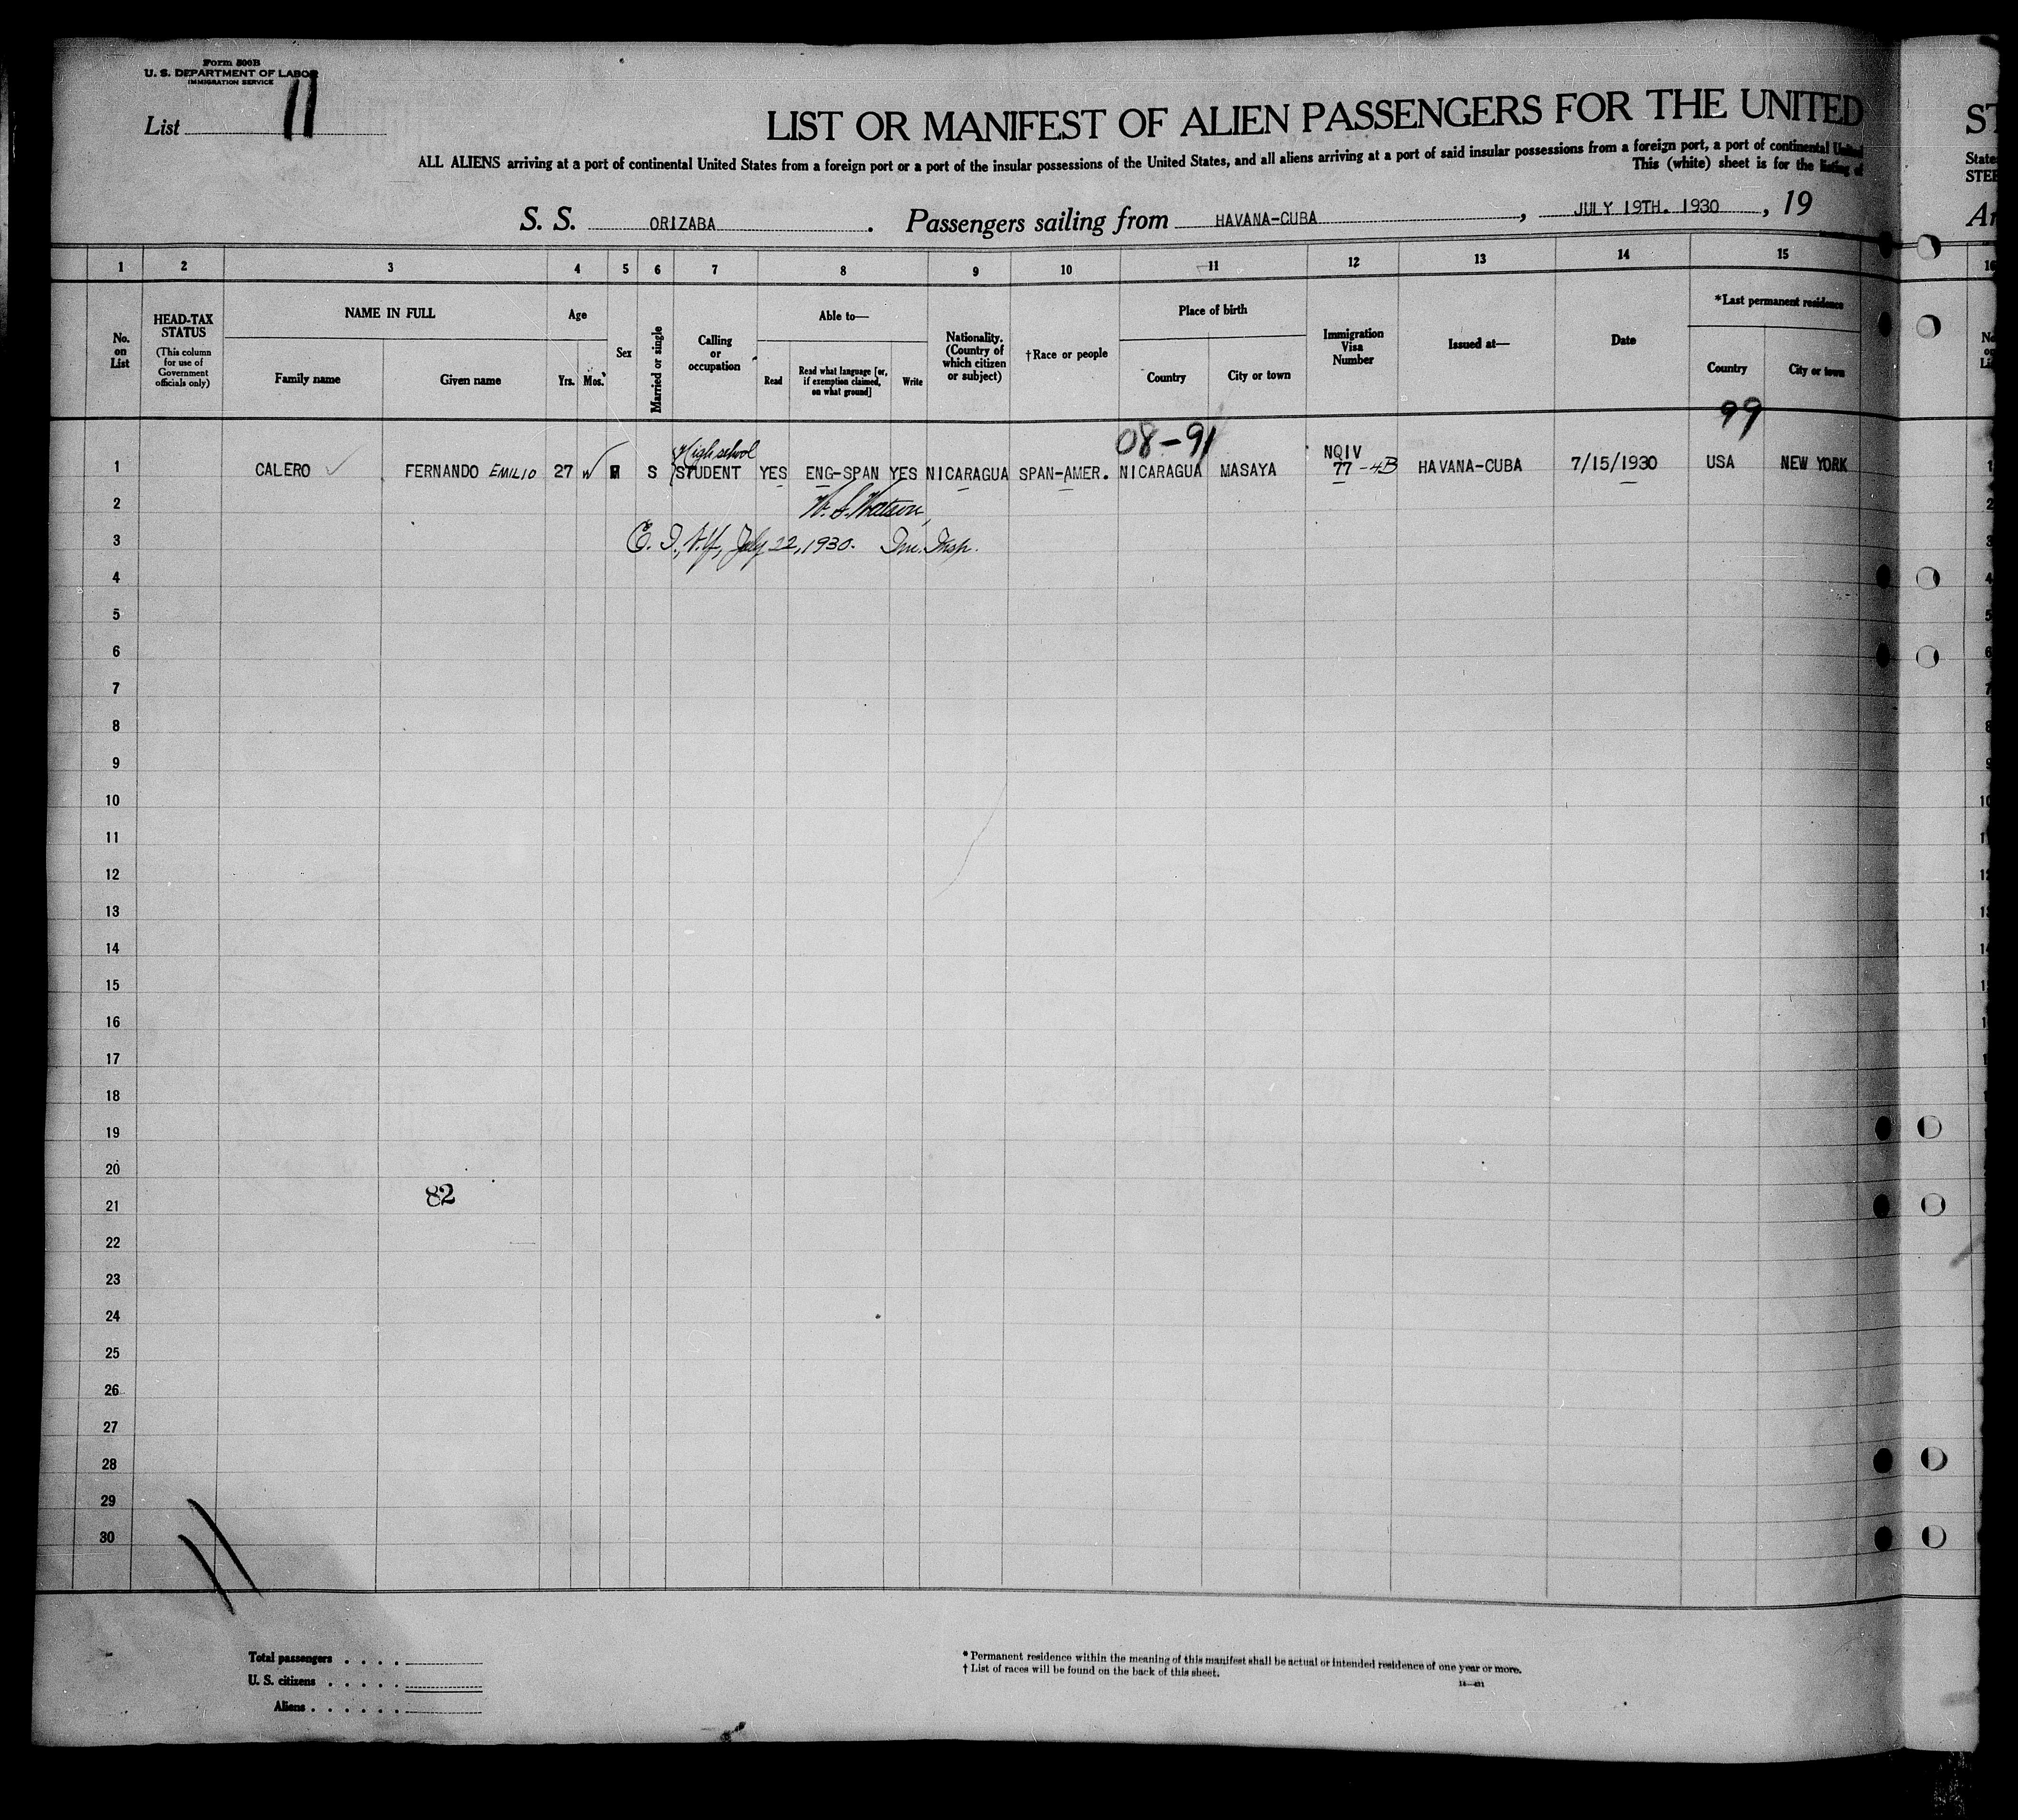 Form 500B
U. S. DEPARTMENT OF LABOR
IMMIGRATION SERVICE
List 11
LIST OR MANIFEST OF ALIEN PASSENGERS FOR THE UNITED
ALL ALIENS arriving at a port of continental United States from a foreign port or a port of the insular possessions of the United States, and all aliens arriving at a port of said insular possessions from a foreign port, a port of continental United
This (white) sheet is for the listing of
S. S. ORIZABA. Passengers sailing from HAVANA-CUBA, JULY 19TH. 1930, 19
1 2 3 4 5 6 7 8 9 10 11 12 13 14 15
No. on List
HEAD-TAX STATUS
(This column for use of Government officials only)
NAME IN FULL
Family name Given name
Age
Yrs. Mos.
Sex
Married or single
Calling or occupation
Able to—
Read
Read what language [or, if exemption claimed, on what ground]
Write
Nationality. (Country of which citizen or subject)
†Race or people
Place of birth
Country City or town
Immigration Visa Number
Issued at—
Date
*Last permanent residence
Country City or town
99
High school 08-91 NQIV
1 CALERO ✓ FERNANDO EMILIO 27 M S STUDENT YES ENG-SPAN YES NICARAGUA SPAN-AMER. NICARAGUA MASAYA 77-4B HAVANA-CUBA 7/15/1930 USA NEW YORK
2 W. S. Watson,
3 E. I., N.Y., July 22, 1930. Im. Insp.
4
5
6
7
8
9
10
11
12
13
14
15
16
17
18
19
20
82
21
22
23
24
25
26
27
28
29
30
11
Total passengers . . . .
U. S. citizens . . . . .
Aliens . . . . . .
* Permanent residence within the meaning of this manifest shall be actual or intended residence of one year or more.
† List of races will be found on the back of this sheet.